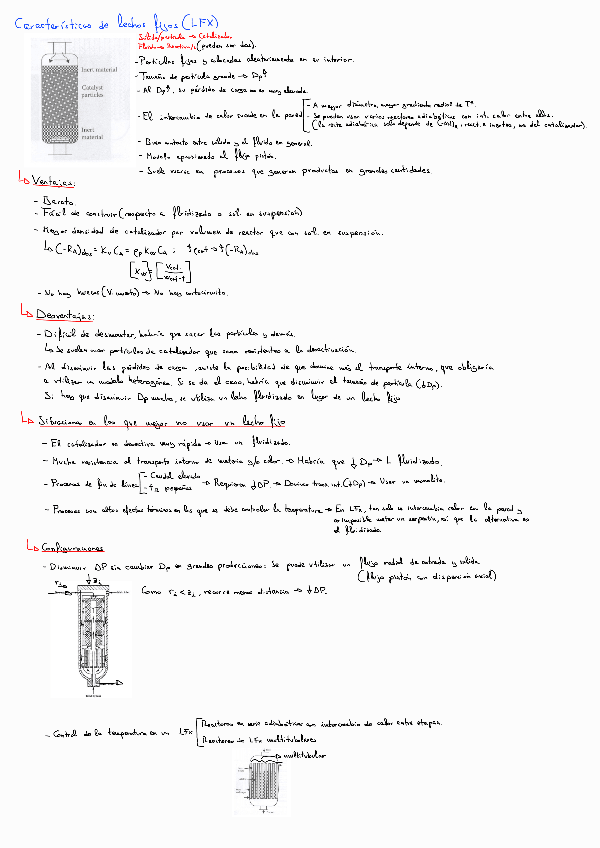 Características de lechos fijos (LFX)
Sólido/partícula → Catalizador
Fluido → Reactivo/s (pueden ser dos).
Inert material
Catalyst particles
Inert material
- Partículas fijas y colocadas aleatoriamente en su interior.
- Tamaño de partícula grande → Dp↑
- Al Dp↑, su pérdida de carga no es muy elevada.
- El intercambio de calor sucede en la pared
- A mayor diámetro, mayor gradiente radial de Tª.
- Se pueden usar varios reactores adiabáticos con int. calor entre ellos.
(la recta adiabática solo depende de react. e inertes, no del catalizador).
- Buen contacto entre sólido y el fluido en general.
- Modelo aproximado al flujo pistón.
- Suele usarse en procesos que generan productos en grandes cantidades
↳ Ventajas:
- Barato.
- Fácil de construir (respecto a fluidizado o sol. en suspensión)
- Mayor densidad de catalizador por volumen de reactor que con sol. en suspensión.
↳ (-RA)obs = Kv CA = ρp Kw CA ;
- No hay huecos (V. muerto) → No hay cortocircuito.
↳ Desventajas:
- Difícil de desmontar, habría que sacar las partículas y demás.
↳ Se suelen usar partículas de catalizador que sean resistentes a la desactivación.
- Al disminuir las pérdidas de carga, existe la posibilidad de que domine más el transporte interno, que obligaría
a utilizar un modelo heterogéneo. Si se da el caso, habría que disminuir el tamaño de partícula (↓Dp).
Si hay que disminuir Dp mucho, se utiliza un lecho fluidizado en lugar de un lecho fijo
↳ Situaciones en las que mejor no usar un lecho fijo
- El catalizador se desactiva muy rápido → Usar un fluidizado.
- Mucha resistencia al transporte interno de materia y/o calor. → Habría que ↓ Dp → L. fluidizado.
- Procesos de fin de línea
- Caudal elevado
- pequeños
→ Requieren ↓ΔP → Domina trans. int. (↓Dp) → Usar un monolito.
- Procesos con altos efectos térmicos en los que se debe controlar la temperatura → En LFx, tan solo se intercambia calor en la pared y
es imposible meter un serpentín, así que la alternativa es
el fluidizado
↳ Configuraciones
- Disminuir ΔP sin cambiar Dp en grandes producciones: Se puede utilizar un flujo radial de entrada y salida
(flujo pistón con dispersión axial)
Como rL < zL, recorre menos distancia → ↓ΔP.
- Control de la temperatura en un LFx
Reactores en serie adiabáticos con intercambio de calor entre etapas.
Reactores de LFx multitubulares
→ multitubular